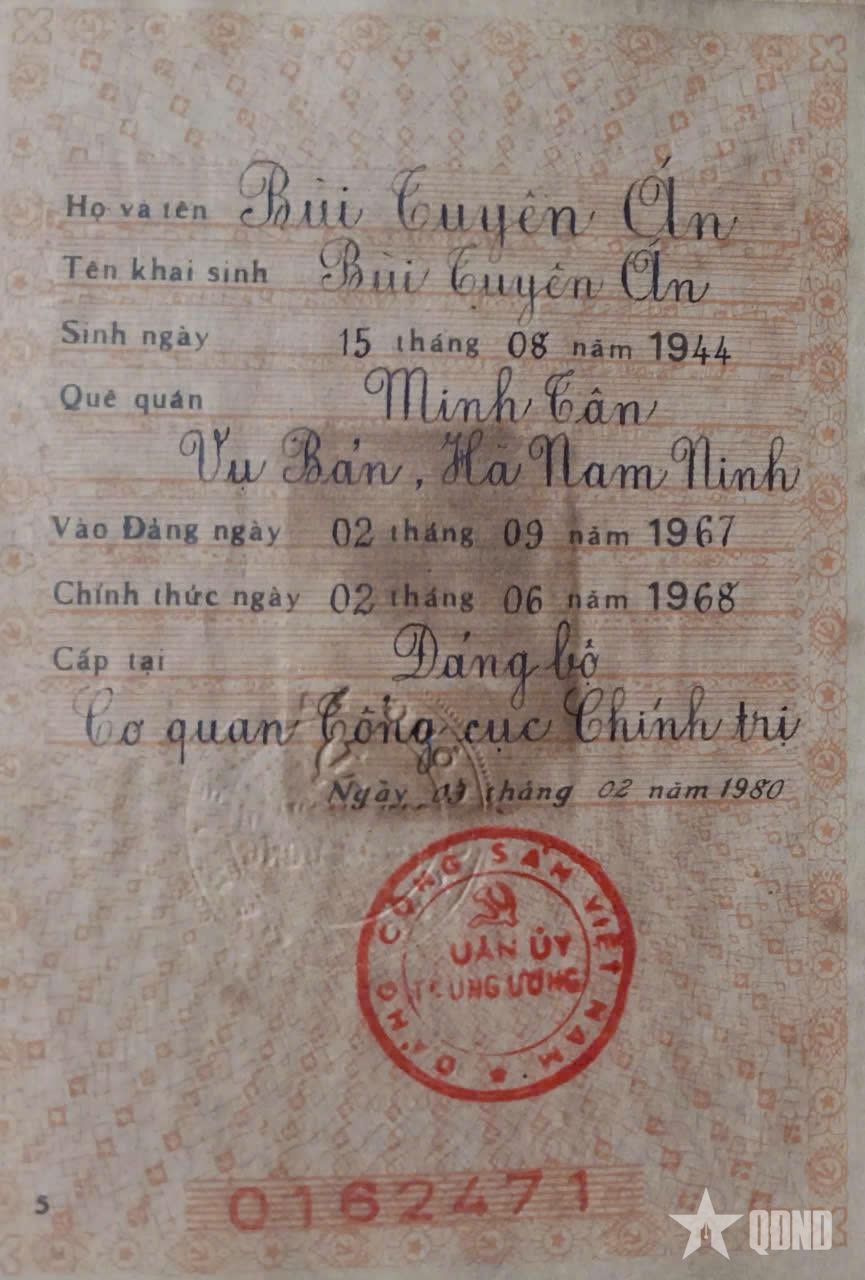 Họ và tên Bùi Tuyên Án
Tên khai sinh Bùi Tuyên Án
Sinh ngày 15 tháng 08 năm 1944
Quê quán Minh Tân
Vụ Bản, Hà Nam Ninh
Vào Đảng ngày 02 tháng 09 năm 1967
Chính thức ngày 02 tháng 06 năm 1968
Cấp tại Đảng bộ
Cơ quan Tổng cục Chính trị
Ngày 03 tháng 02 năm 1980
ĐẢNG CỘNG SẢN VIỆT NAM
QUÂN ỦY
TRUNG ƯƠNG
5
0162471
QĐND